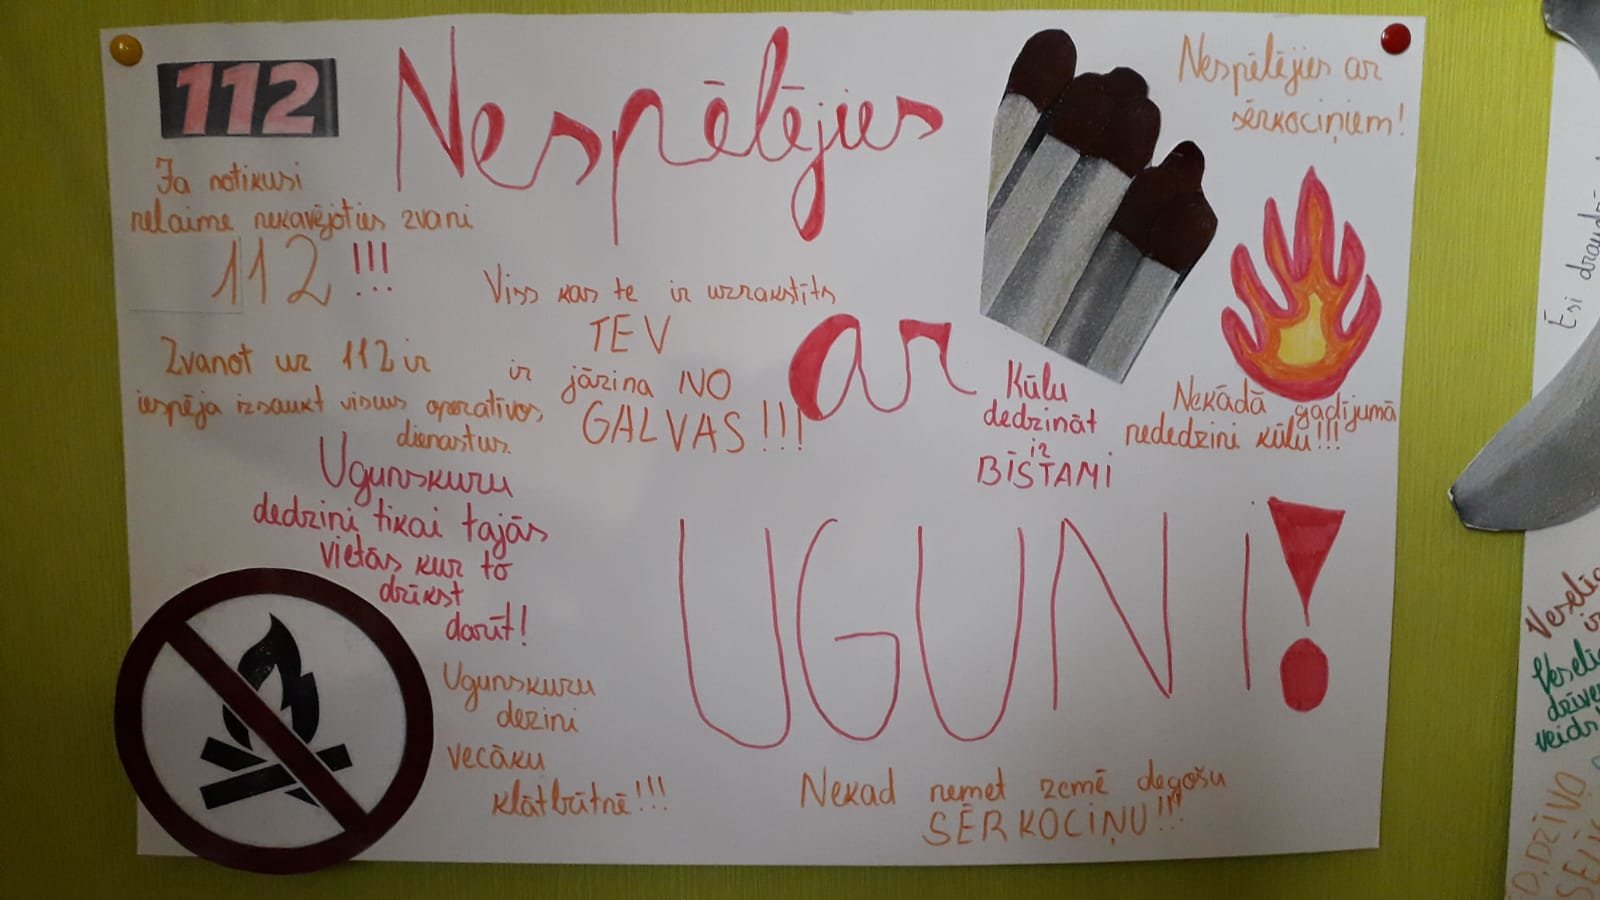 112
Nespēlējies
ar
UGUNI!
Ja notikusi
nelaime nekavējoties zvani
112!!!
Zvanot uz 112 ir
iespēja izsaukt visus operatīvos
dienastus.
Viss kas te ir uzrakstīts
TEV
ir jāzina NO
GALVAS!!!
Nespēlējies ar
sērkociņiem!
Kūlu
dedzināt
ir
BĪSTAMI
Nekādā gadījumā
nededzini kūlu!!!
Ugunskuru
dedzini tikai tajās
vietās kur to
drīkst
darīt!
Ugunskuru
dezini
vecāku
klātbūtnē!!!
Nekad nemet zemē degošu
SĒRKOCIŅU!!!
Esi
Veselīg
dzīves
veids